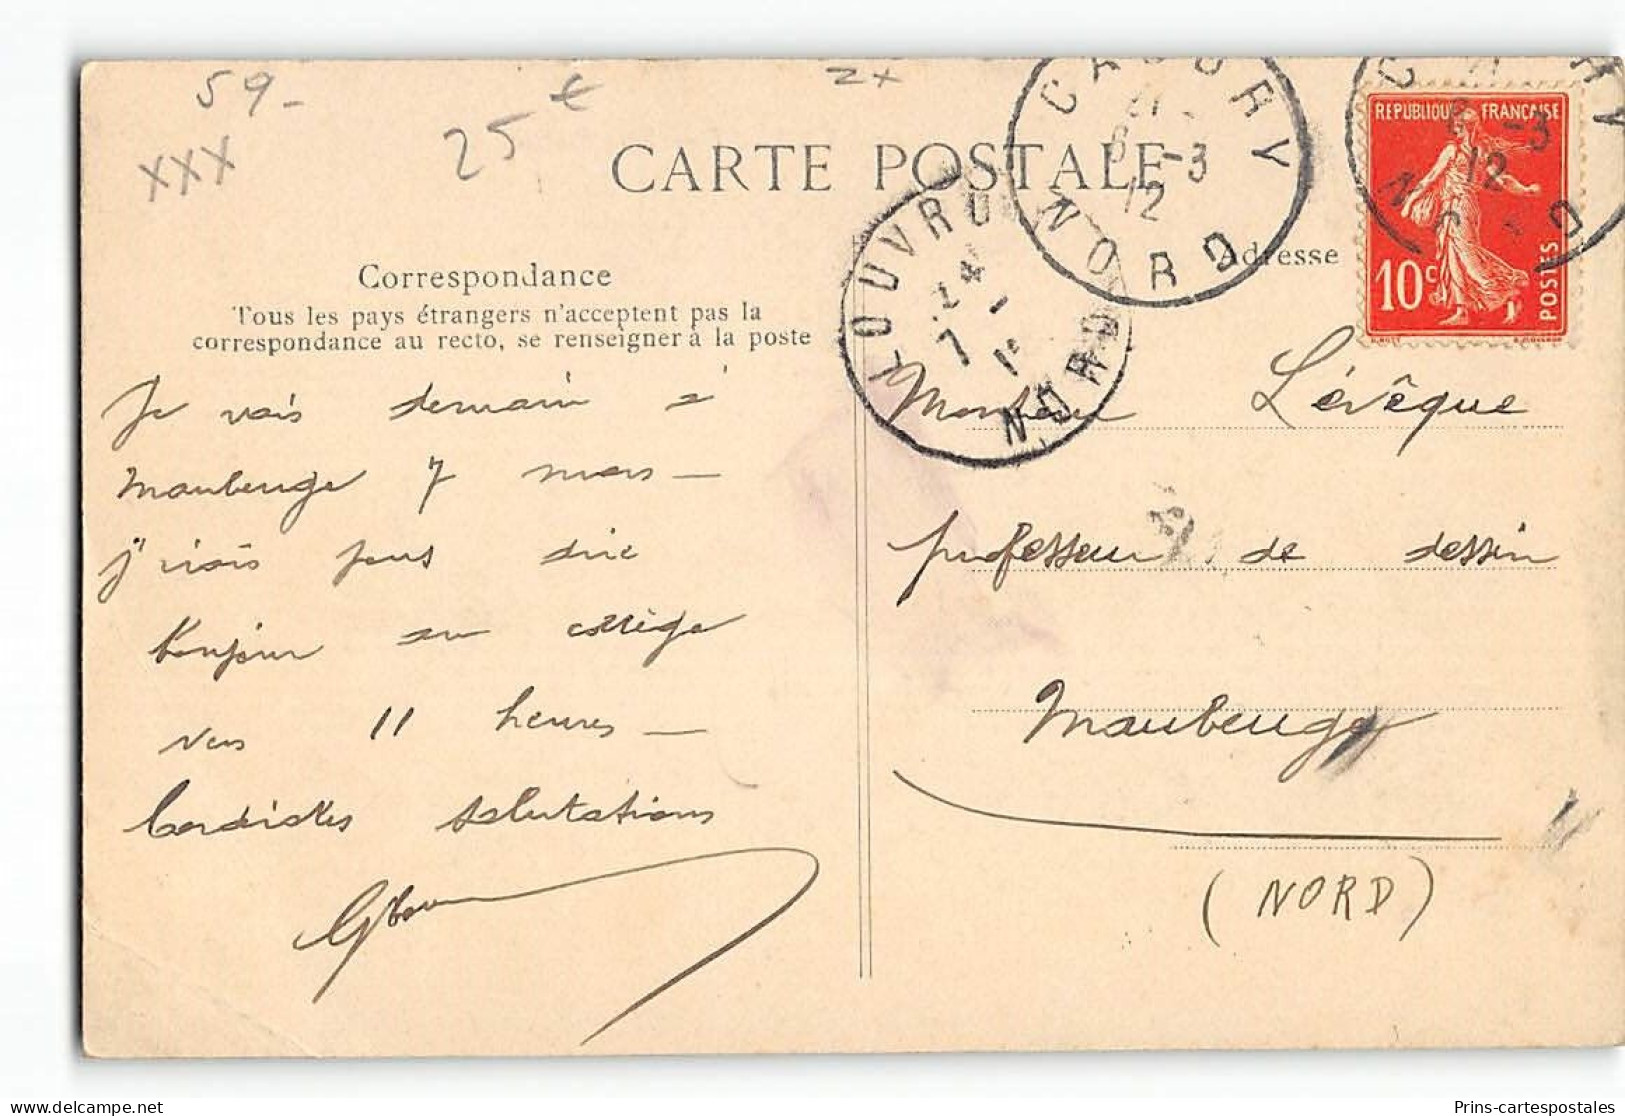 59-
XXX
25 €
2x
CARTE POSTALE
Correspondance
Tous les pays étrangers n'acceptent pas la
correspondance au recto, se renseigner à la poste
Adresse
CAUDRY
6 -3
12
NORD
REPUBLIQUE FRANÇAISE
10c
POSTES
LOUVRO
7
NORD
Je vais demain à
Maubeuge 7 mars —
j'irais vous dire
bonjour au collège
vers 11 heures —
Cordiales salutations
Monsieur Lévêque
professeur de dessin
Maubeuge
(NORD)
Prins-cartespostales